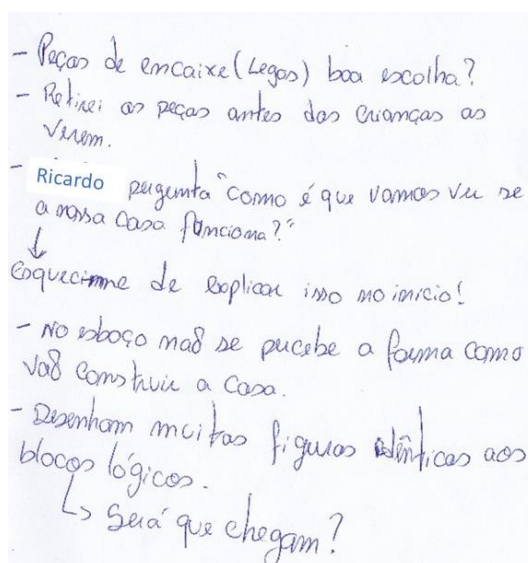 - Peças de encaixe (Legos) boa escolha?
- Retirei as peças antes das crianças as
verem.
- Ricardo pergunta "como é que vamos ver se
a nossa casa funciona?"
↓
Esqueci-me de explicar isso no inicio!
- No esboço não se percebe a forma como
vão construir a casa.
- Desenham muitas figuras idênticas aos
blocos lógicos.
↳ Será que chegam?